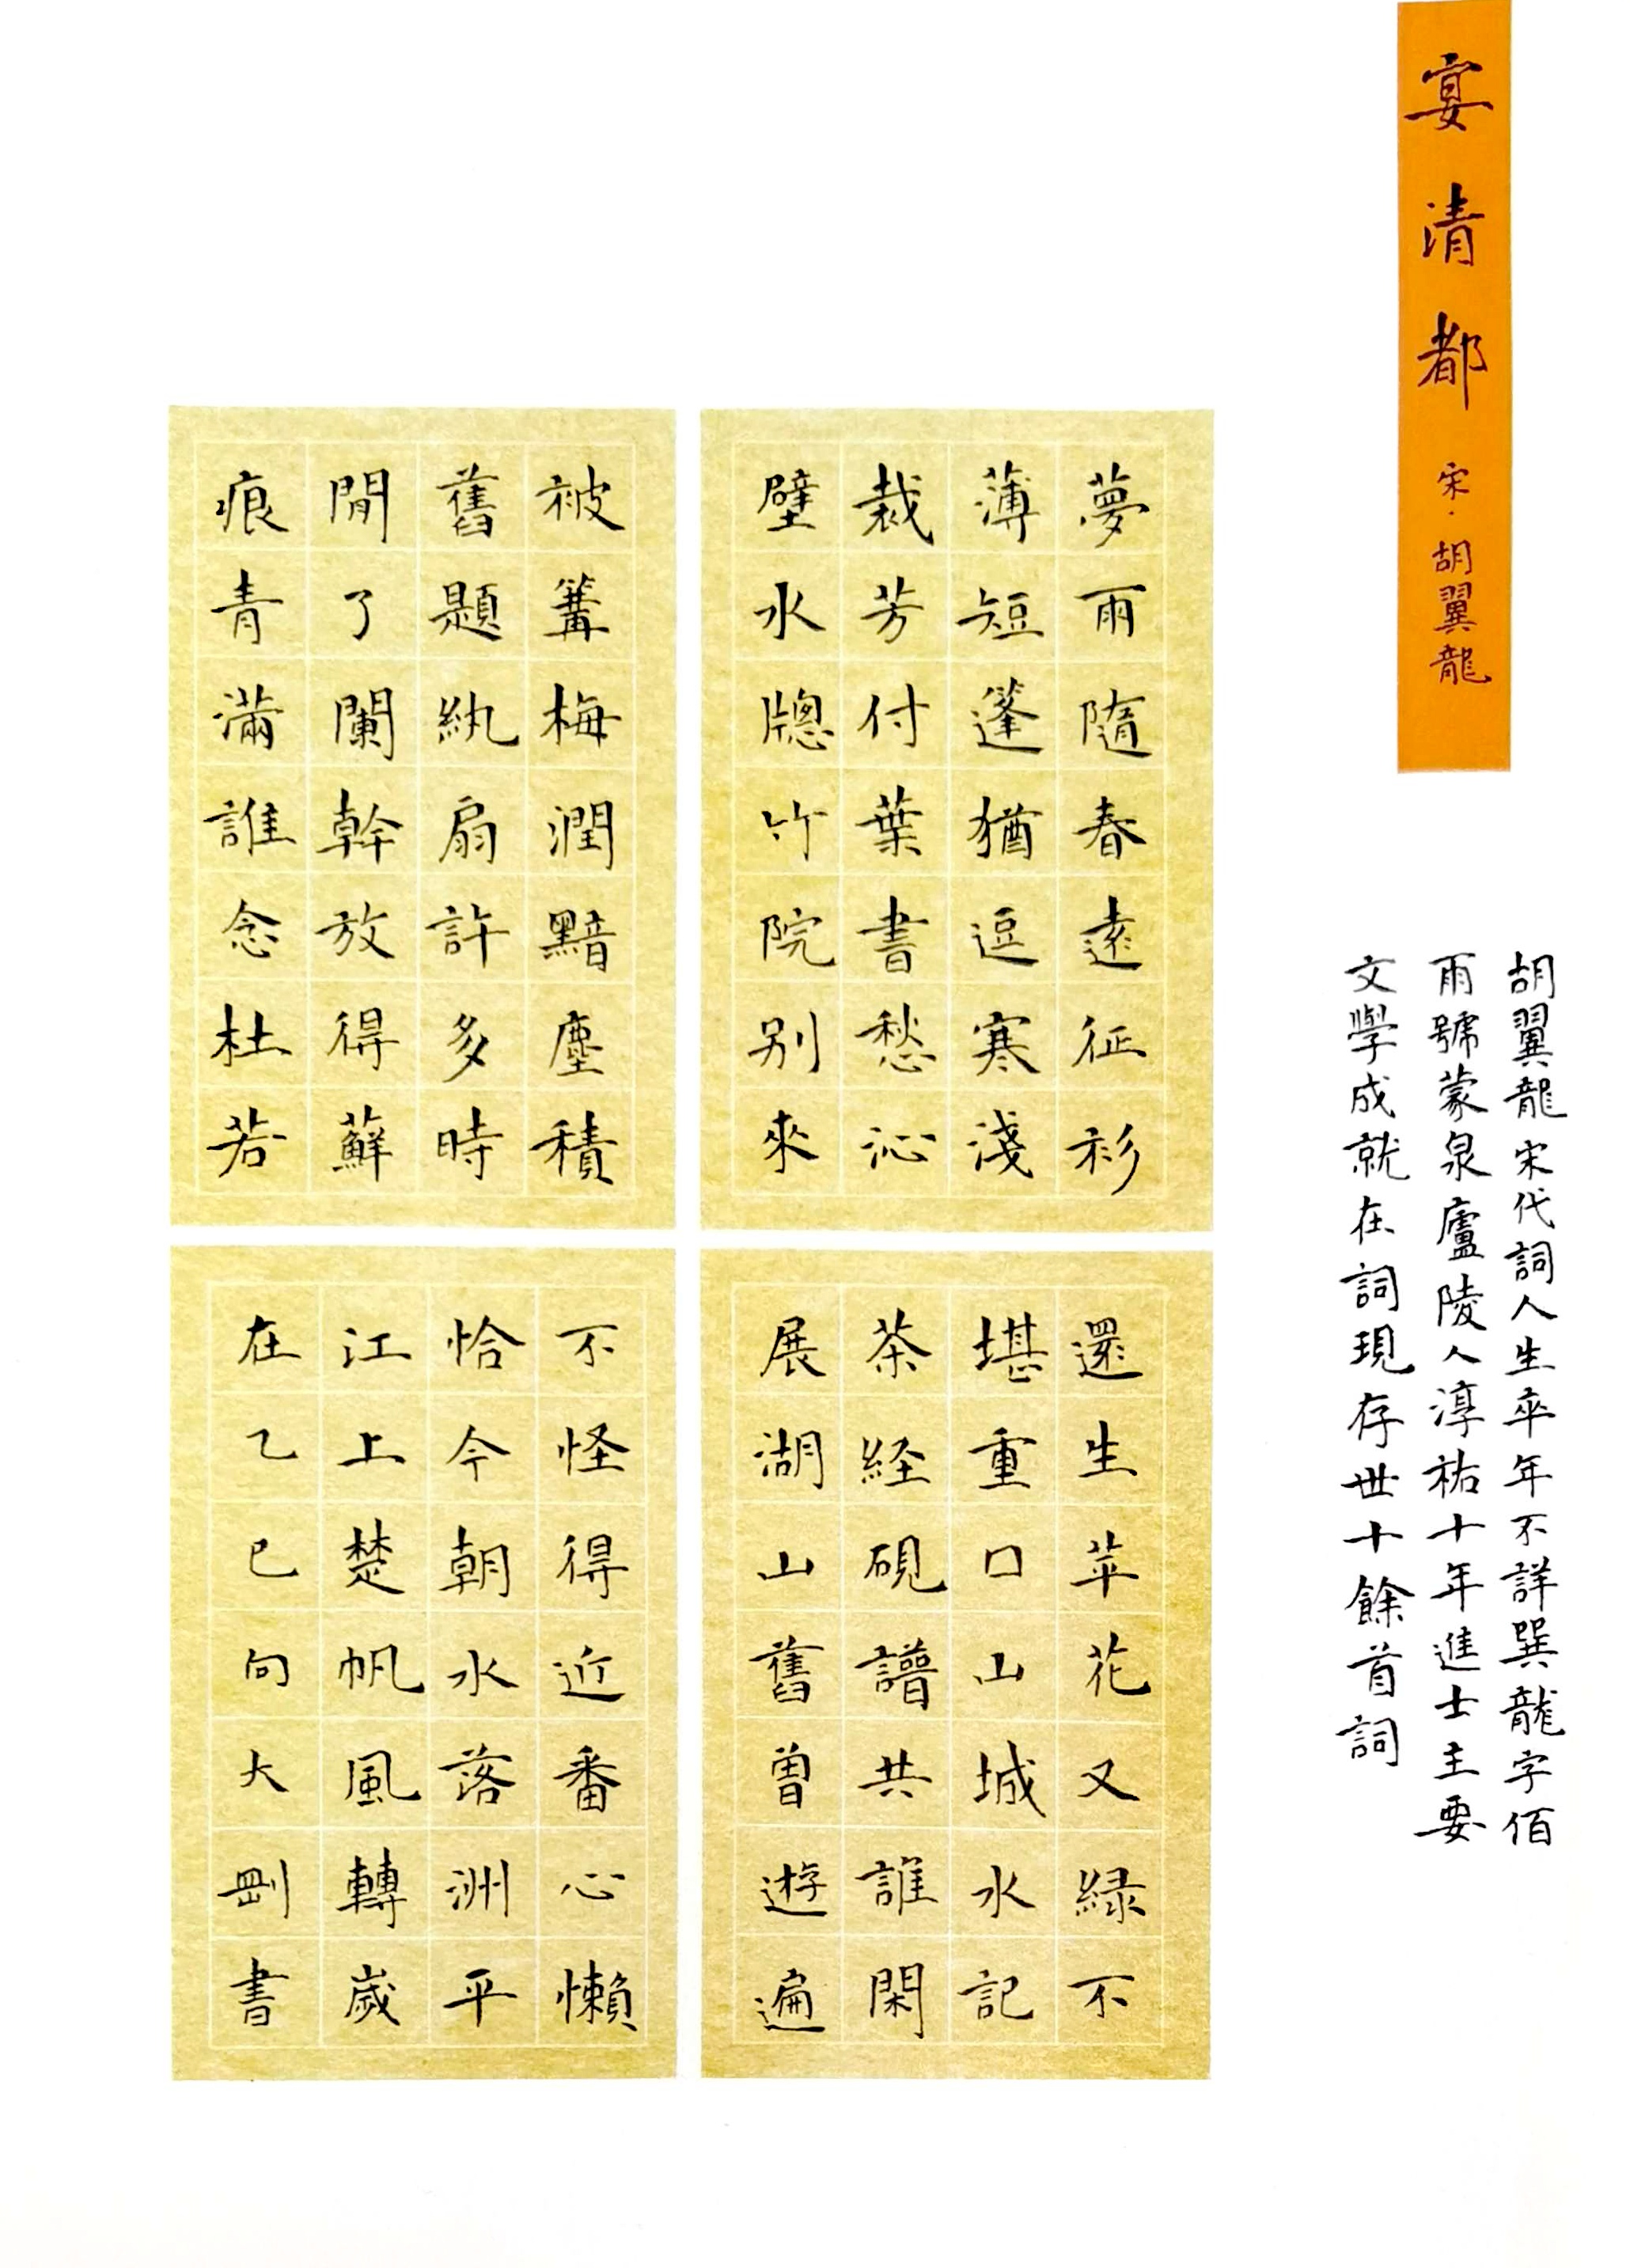 宴清都 宋·胡翼龍
胡翼龍宋代詞人生卒年不詳巽龍字佰
雨號蒙泉廬陵人淳祐十年進士主要
文學成就在詞現存世十餘首詞
夢雨隨春遠征衫
薄短篷猶逗寒淺
裁芳付葉書愁沁
壁水牕竹院別來
被篝梅潤黯塵積
舊題紈扇許多時
閒了闌幹放得蘚
痕青滿誰念杜若
還生苹花又緑不
堪重口山城水記
茶経硯譜共誰閑
展湖山舊曾遊遍
不怪得近番心懶
恰今朝水落洲平
江上楚帆風轉歲
在乙巳向大剛書